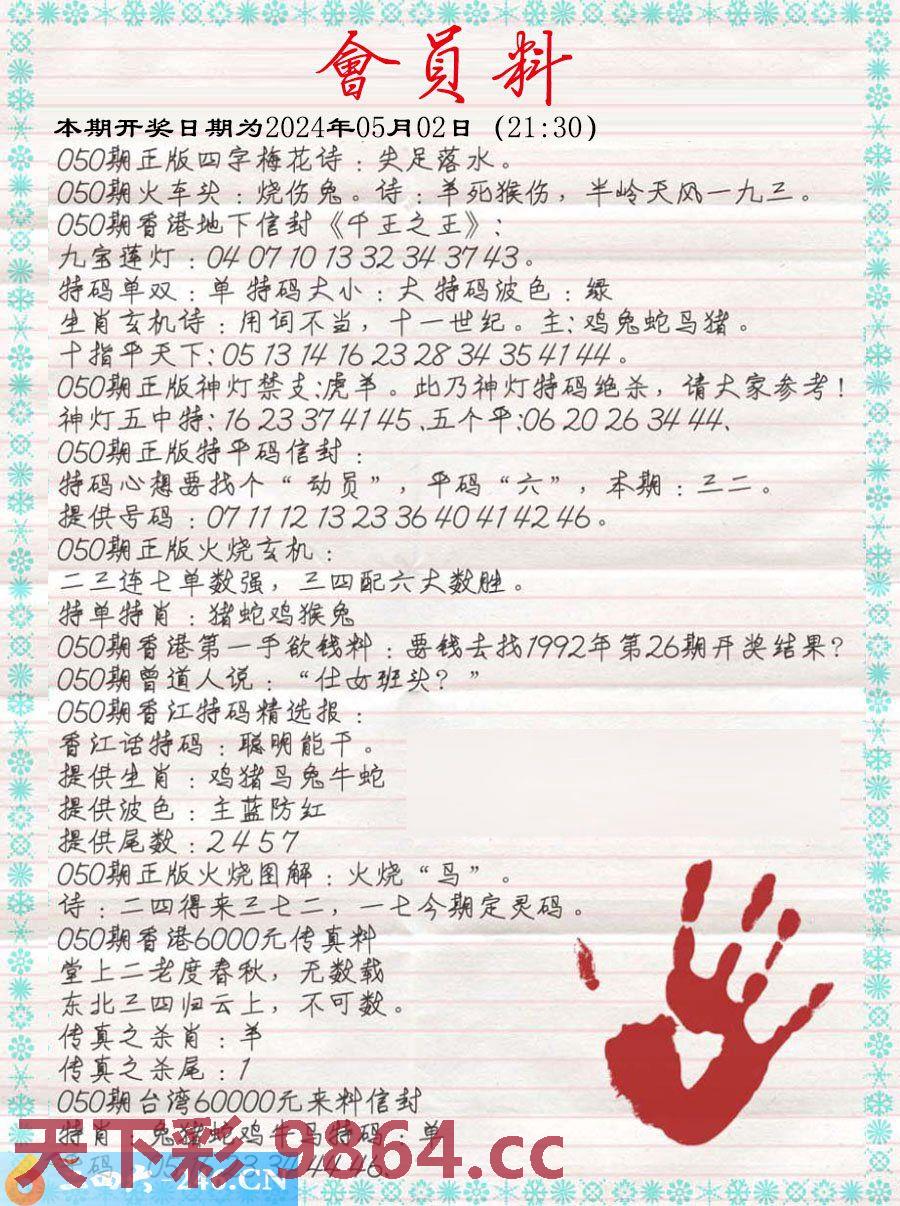 會員料
本期开奖日期为2024年05月02日（21:30）
050期正版四字梅花诗：失足落水。
050期火车头：烧伤兔。诗：羊死猴伤，半岭天风一九三。
050期香港地下信封《千王之王》：
九宝莲灯：04 07 10 13 32 34 37 43。
特码单双：单 特码大小：大 特码波色：绿
生肖玄机诗：用词不当，十一世纪。主：鸡兔蛇马猪。
十指平天下：05 13 14 16 23 28 34 35 41 44。
050期正版神灯禁支：虎羊。此乃神灯特码绝杀，请大家参考！
神灯五中特：16 23 37 41 45、五个平：06 20 26 34 44、
050期正版特平码信封：
特码心想要找个“动员”，平码“六”，本期：三二。
提供号码：07 11 12 13 23 36 40 41 42 46。
050期正版火烧玄机：
二三连七单数强，三四配六大数胜。
特单特肖：猪蛇鸡猴兔
050期香港第一手欲钱料：要钱去找1992年第26期开奖结果？
050期曾道人说：“仕女班头？”
050期香江特码精选报：
香江话特码：聪明能干。
提供生肖：鸡猪马兔牛蛇
提供波色：主蓝防红
提供尾数：2 4 5 7
050期正版火烧图解：火烧“鸟”。
诗：二四得来三七二，一七今期定灵码。
050期香港6000元传真料
堂上二老度春秋，无数载
东北三四归云上，不可数。
传真之杀肖：羊
传真之杀尾：1
050期台湾60000元来料信封
特肖：兔猪蛇鸡牛马特码：单
天下彩 9864.cc
34 44 46、
246.CN